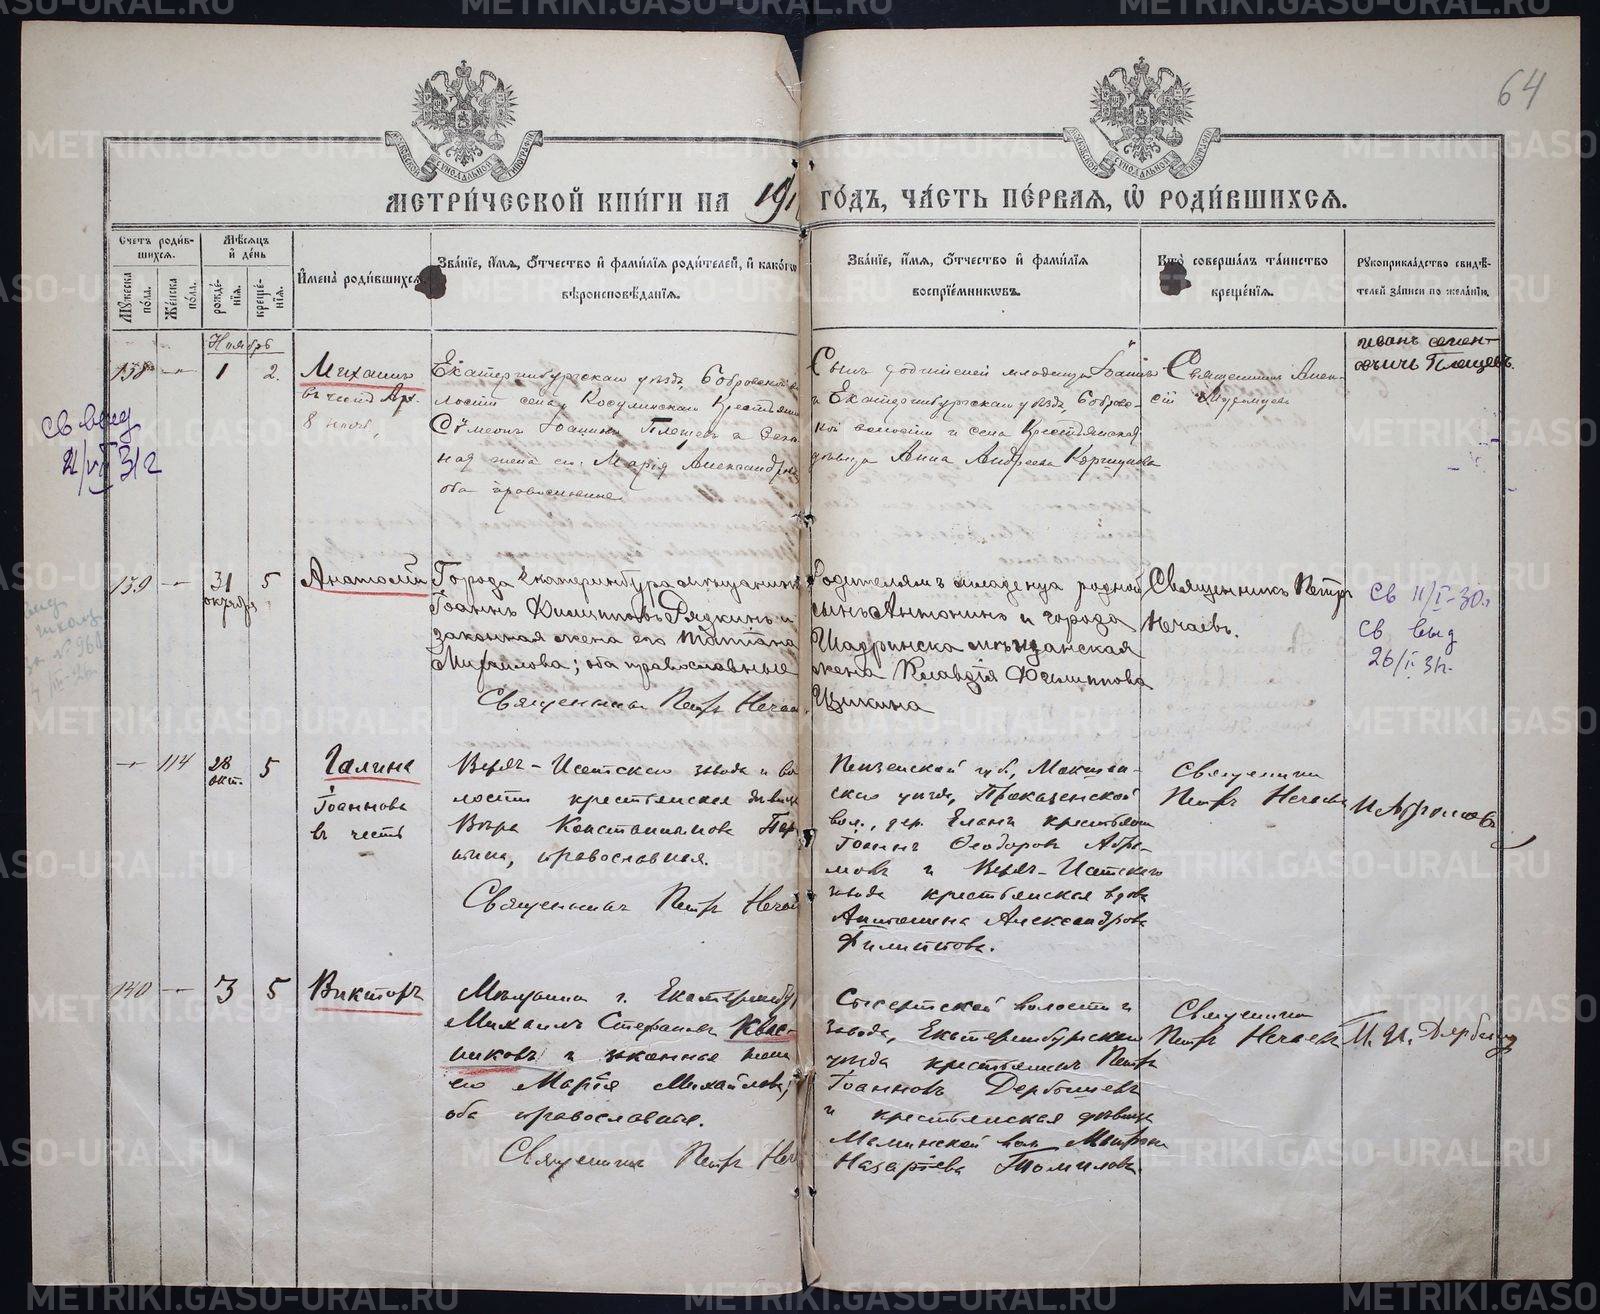 64
МЕТРИ́ЧЕСКОЙ КНИ́ГИ НА 191
ГО́ДЪ, ЧА́СТЬ ПЕ́РВАЯ, Ѡ РОДИ́ВШИХСЯ.
Счетъ роди́вшихся.
Му́жеска по́ла.
Же́нска по́ла.
Мѣ́сяцъ и де́нь
рожде́нія.
креще́нія.
Имена̀ роди́вшихся.
Зва́ніе, и́мя, о́тчество и фами́лія роди́телей, и како́гѡ
вѣроисповѣ́данія.
Зва́ніе, и́мя, о́тчество и фами́лія
воспріе́мникѡвъ.
Кто̀ соверша́лъ та́инство
креще́нія.
Рукоприкла́дство свидѣ́-
телей за́писи по жела́нію.
Ноябрь
138 1 2.
Михаилъ
въ честь Арх.
8 нояб.
Екатеринбургскаго уѣзда, Бобровской во-
лости села Косулинскаго Крестьянинъ
Сѵмеонъ Іоанновъ Плещевъ и Закон-
ная жена его Марія Александрова
оба православные
Сынъ родителей младенца Іоаннъ
и Екатеринбургскаго уѣзда, Бобровс-
кой волости и села Крестьянская
дѣвица Анна Андреева Коршунова
Священникъ Алек-
сій
иванъ семен-
овичь Плещевъ.
св выд
21/VII 31 г
139 31 октября 5
Анатолій
Города Екатеринбурга мѣщанинъ
Іоаннъ Филипповъ Рядкинъ и
законная жена его Татіана
Михаилова; оба православные
Священникъ Петръ Нечаев
Родителямъ младенца родной
сынъ Антонинъ и города
Шадринска мѣщанская
жена Клавдія Филиппова
Щипкина
Священникъ Петръ
Нечаевъ.
Св 11/I-30.
Св выд
26/II 31г.
114 28 окт. 5
Галина
Іоаннова
въ честь
Верхъ-Исетскаго завода и во-
лости крестьянская дѣвица
Вѣра Константинова Пер-
шина, православная.
Священникъ Петръ Нечае
Пензенской губ., Мокшан-
скаго уѣзда, Проказенской
вол., дер. Елань крестьянинъ
Іоаннъ Ѳеодоровъ Абра-
мовъ и Верхъ-Исетскаго
завода крестьянская вдова
Антонина Александрова
Филиппова.
Священникъ
Петръ Нечаевъ
И Абрамовъ
140 3 5
Викторъ
Мѣщанинъ г. Екатеринбур
Михаилъ Стефановъ Квас-
никовъ и законная жена
его Марія Михайлова;
оба православные.
Священникъ Петръ Неч
Сысертской волости и
завода, Екатеринбургскаго
уѣзда крестьянинъ Петръ
Іоанновъ Дербышевъ
и крестьянская дѣвица
Маминской вол. Матрона
Назаріева Томилова.
Священникъ
Петръ Нечаевъ
П. И. Дербышев
METRIKI.GASO-URAL.RU